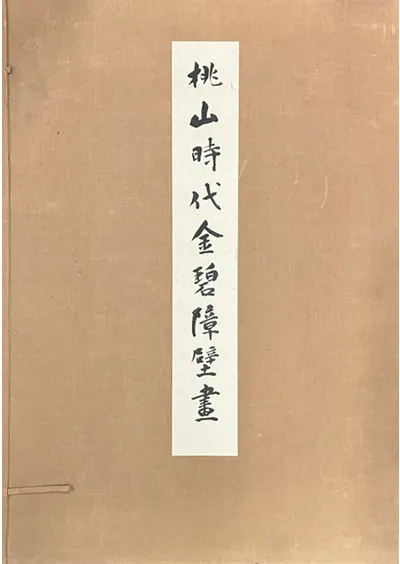 桃山時代金碧障壁畫